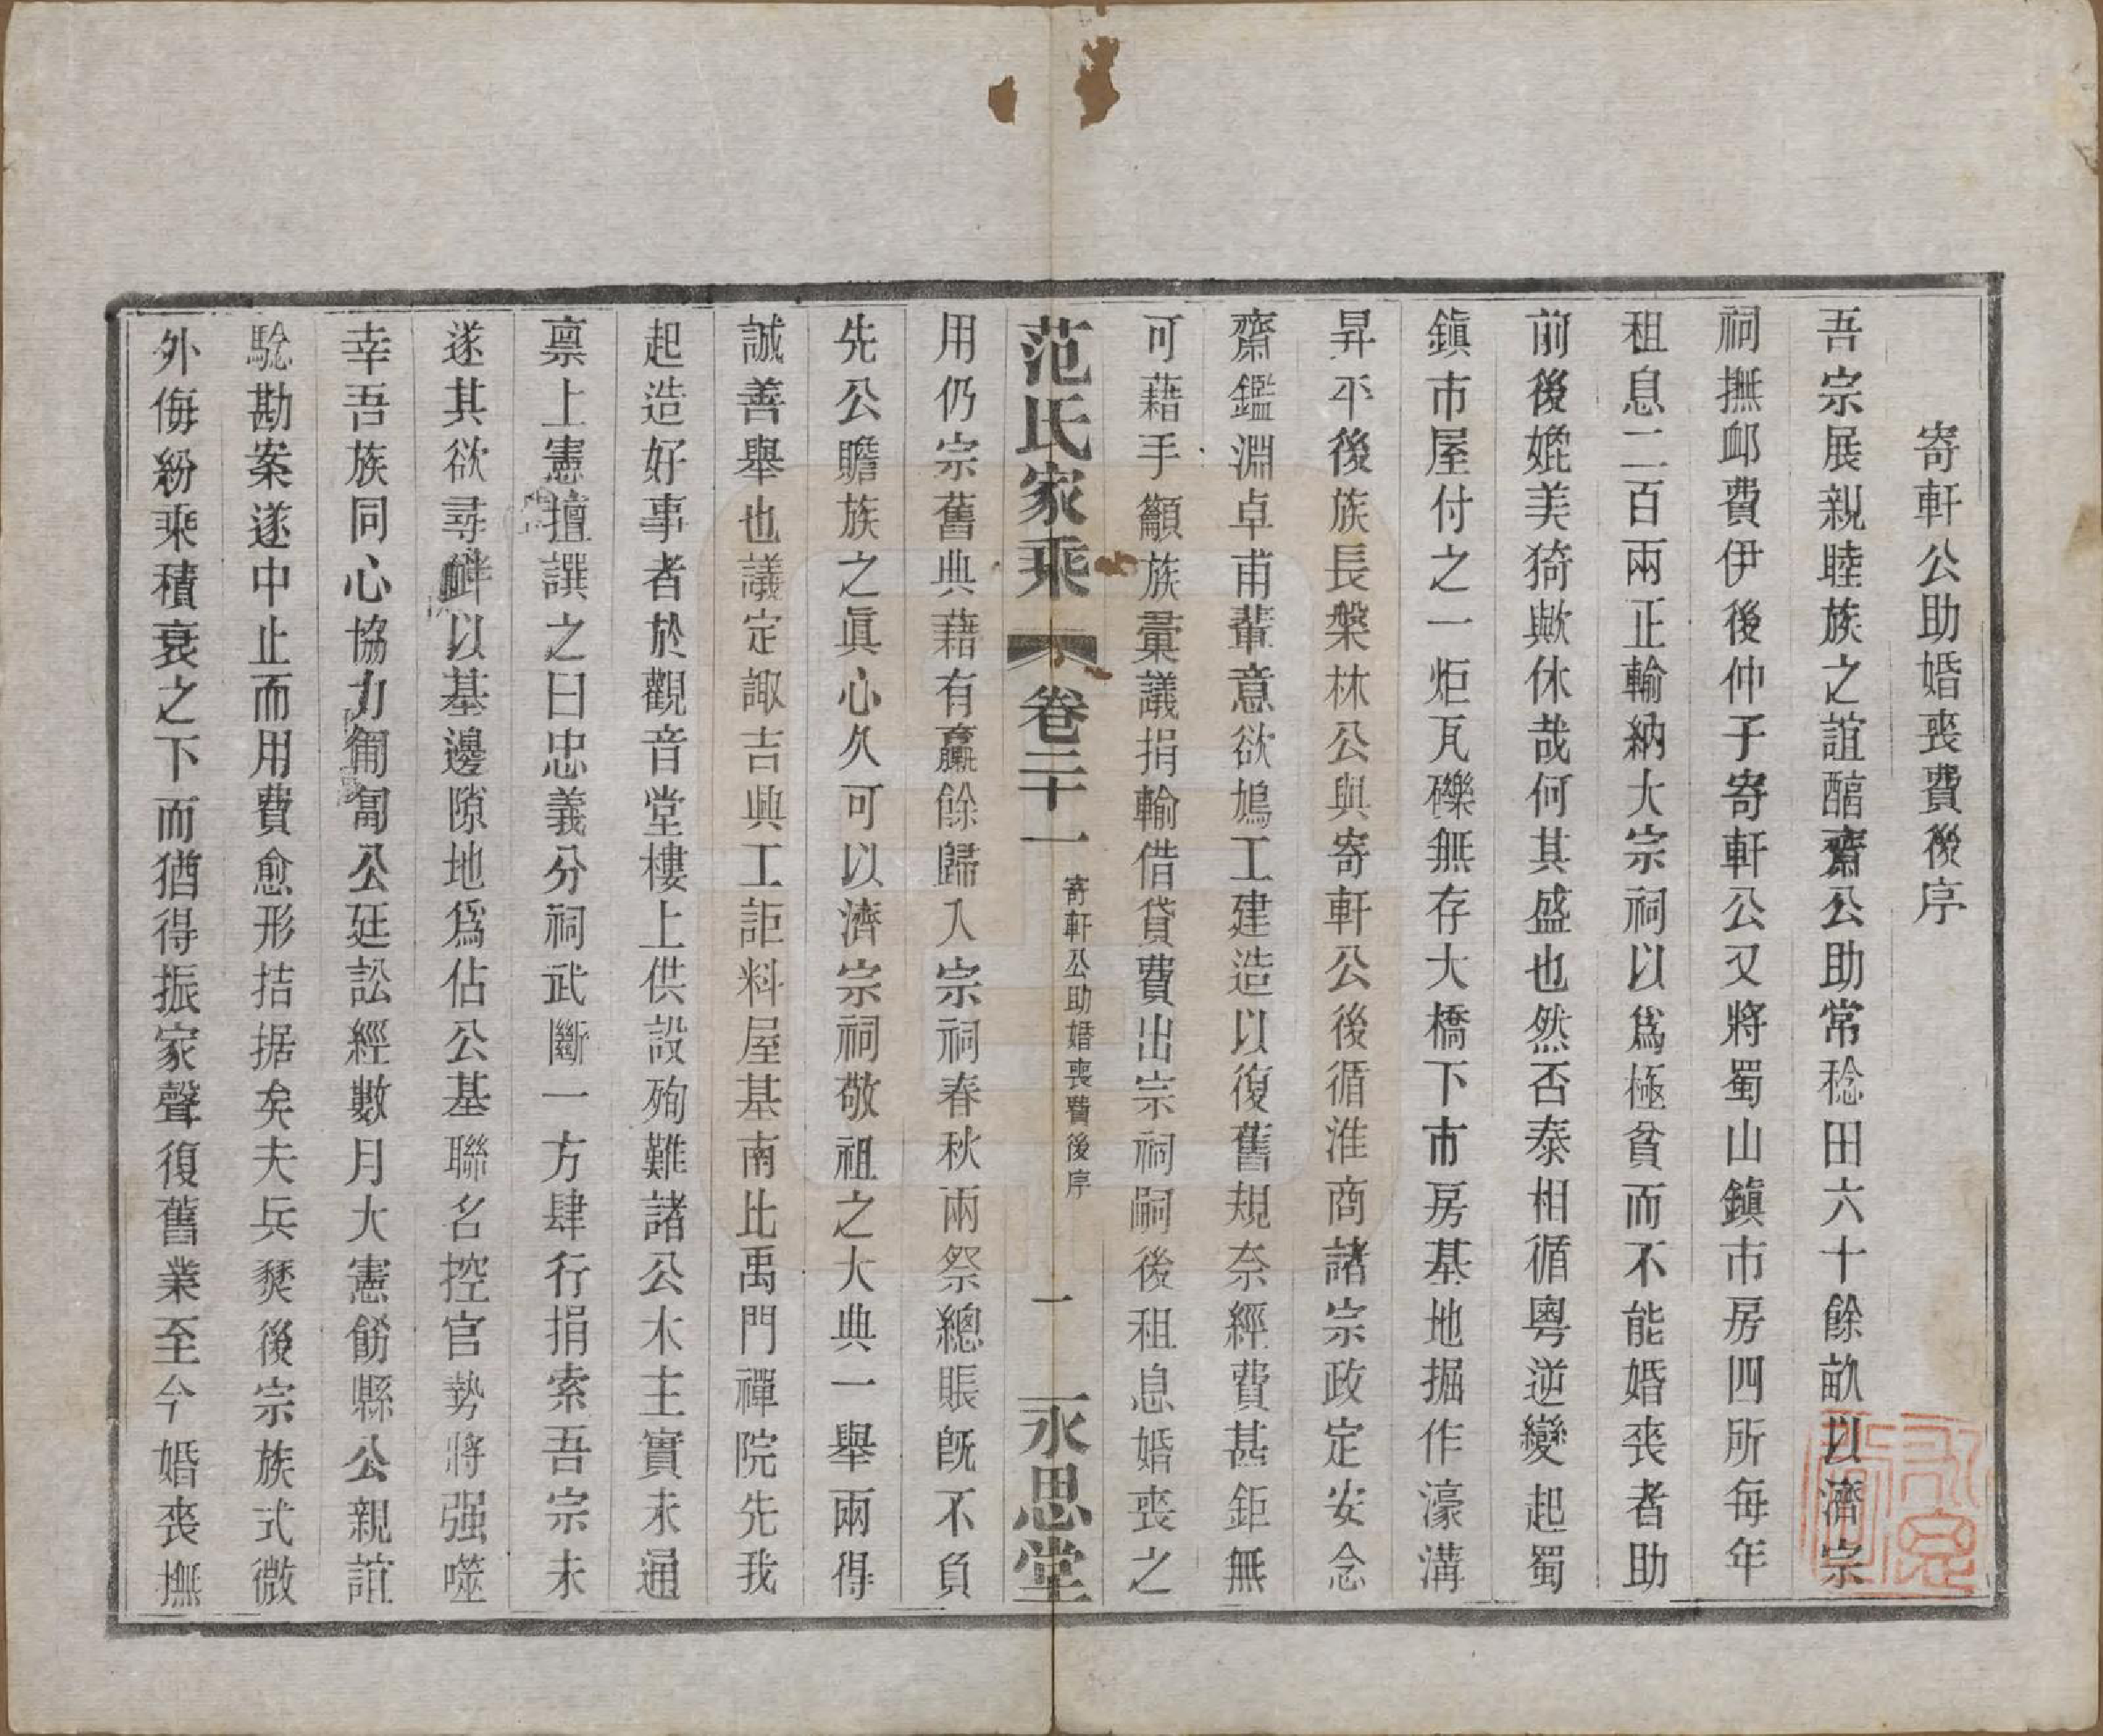 寄軒公助婚喪費後序
吾宗展親睦族之誼醕齋公助常稔田六十餘畝以濟宗
祠撫卹費伊後仲子寄軒公又將蜀山鎮市房四所每年
租息二百兩正輸納大宗祠以爲極貧而不能婚喪者助
前後媲美猗歟休哉何其盛也然否泰相循粵逆變起蜀
鎮市屋付之一炬瓦礫無存大橋下市房基地掘作濠溝
昇平後族長槃林公與寄軒公後循淮商諸宗政定安念
齋鑑淵卓甫輩意欲鳩工建造以復舊規奈經費甚鉅無
可藉手籲族彙議捐輸借貸費出宗祠嗣後租息婚喪之
范氏家乘 卷二十一 寄軒公助婚喪費後序 一 永思堂
用仍宗舊典藉有贏餘歸入宗祠春秋兩祭總賬旣不負
先公贍族之眞心久可以濟宗祠敬祖之大典一舉兩得
誠善舉也議定諏吉興工詎料屋基南比禹門禪院先我
起造好事者於觀音堂樓上供設殉難諸公木主實未通
禀上憲擅譔之曰忠義分祠武斷一方肆行捐索吾宗未
遂其欲尋衅以基邊隙地爲佔公基聯名控官勢將强噬
幸吾族同心協力匍匐公廷訟經數月大憲飭縣公親誼
騐勘案遂中止而用費愈形拮据矣夫兵燹後宗族式微
外侮紛乘積衰之下而猶得振家聲復舊業至今婚喪撫